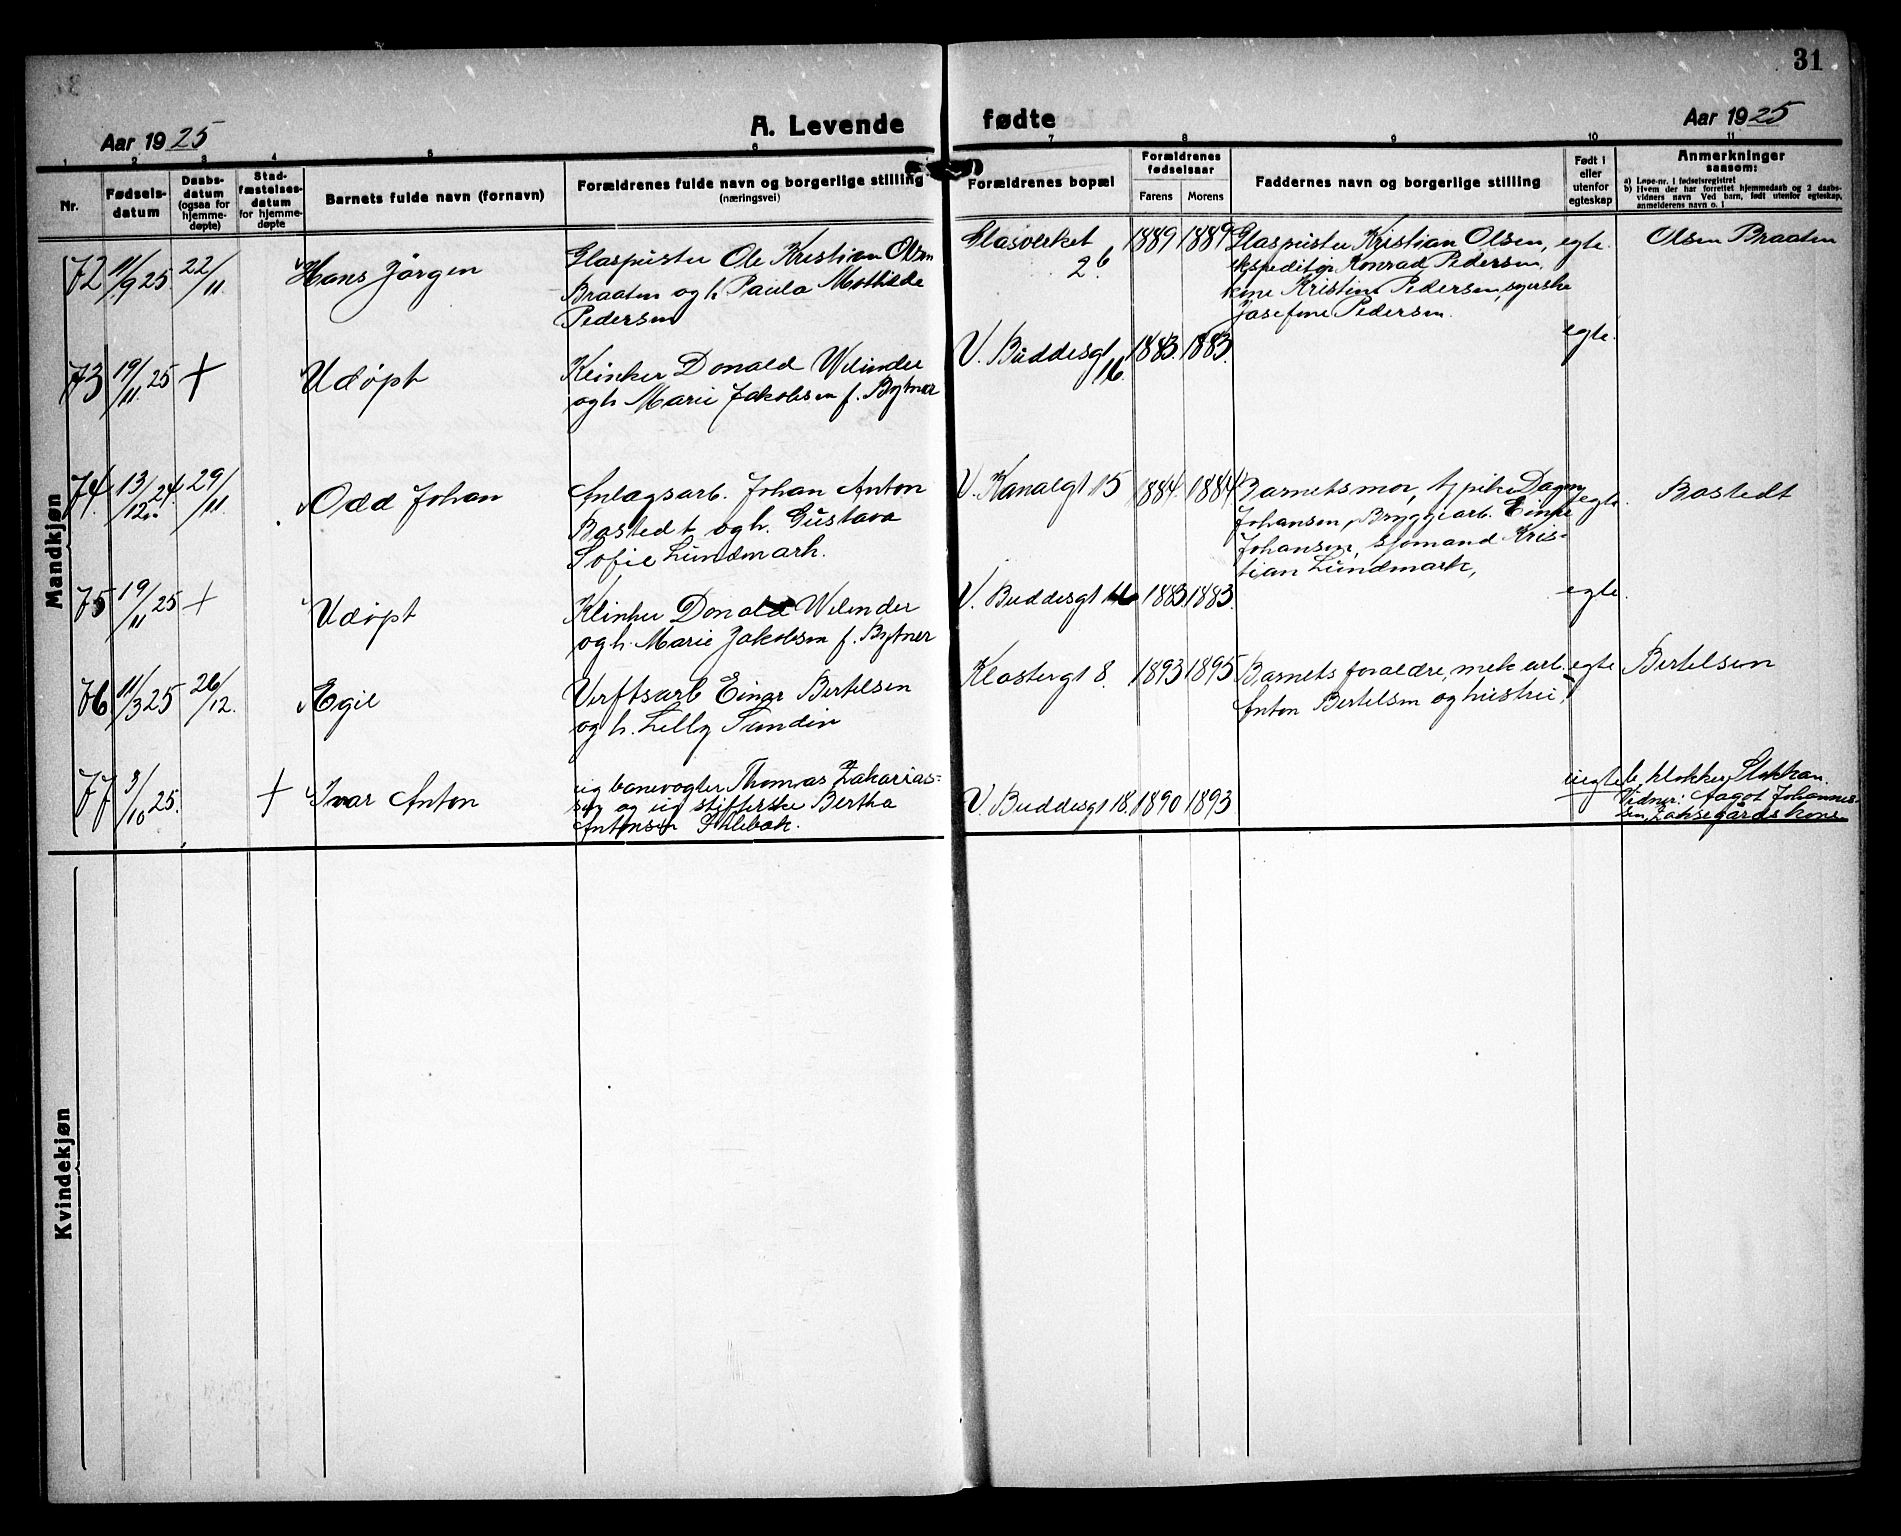 31
Aar 1925
A. Levende fødte
Aar 1925
1 2 3 4 5 6 7 8 9 10 11
Nr.
Fødsels-
datum
Daabs-
datum
(ogsaa for
hjemme-
døpte)
Stad-
fæstelses-
datum
for hjemme-
døpte
Barnets fulde navn (fornavn)
Forældrenes fulde navn og borgerlige stilling
(næringsvei)
Forældrenes bopæl
Forældrenes
fødselsaar
Farens Morens
Faddernes navn og borgerlige stilling
Født i
eller
utenfor
egteskap
Anmerkninger
saasom:
a) Løpe-nr. i fødselsregistret
b) Hvem der har forrettet hjemmedaab og 2 daabs-
vidners navn Ved barn, født utenfor egteskap,
anmelderens navn o. l
Mandkjøn
72 11/9 25. 22/11. Hans Jörgen
Glaspuster Ole Kristian Olsen
Braaten og h. Paula Mathilde
Pedersen
Glasverket
26.
1889 1889
Glaspuster Kristian Olsen,
ekspeditør Konrad Pedersen,
kone Kristine Pedersen, syerske
Josefine Pedersen.
egte. Olsen Braaten
73 19/11. 25 + Udøpt
Klinker Donald Welinder
og h. Marie Jakobsen f. Bytner
V. Buddesgt 16. 1883. 1883. egte.
74. 13/12. 24. 29/11. Odd Johan
Anlægsarb. Johan Anton
Bastedt og h. Gustava
Sofie Lundmark.
V. Kanalgt 15 1884. 1884
Barnets mor, tj.pike Dagny
Johansen, Bryggearb. Einar
Johansen, sjømand Kris-
tian Lundmark,
egte. Bastedt
75 19/11 25 + Udøpt
Klinker Donald Welinder
og h. Marie Jakobsen f. Bytner
V. Buddesgt 16 1883 1883. egte.
76 11/3 25 26/12. Egil
Verftsarb Einar Bertelsen
og h. Lelly Sundin
Klostergt 8. 1893 1895
Barnets foraldre, mek arb.
Anton Bertelsen og hustru,
egte Bertelsen
77 3/10 25. + Ivar Anton
ug banevogter Thomas Zakarias-
sen og ug stifterske Bertha
Antonsen
V. Buddesgt 18. 1890 1893
uegte b, klokker Stokkan.
Vidner: Aagot Johannes-
sen,
Kvindekjøn